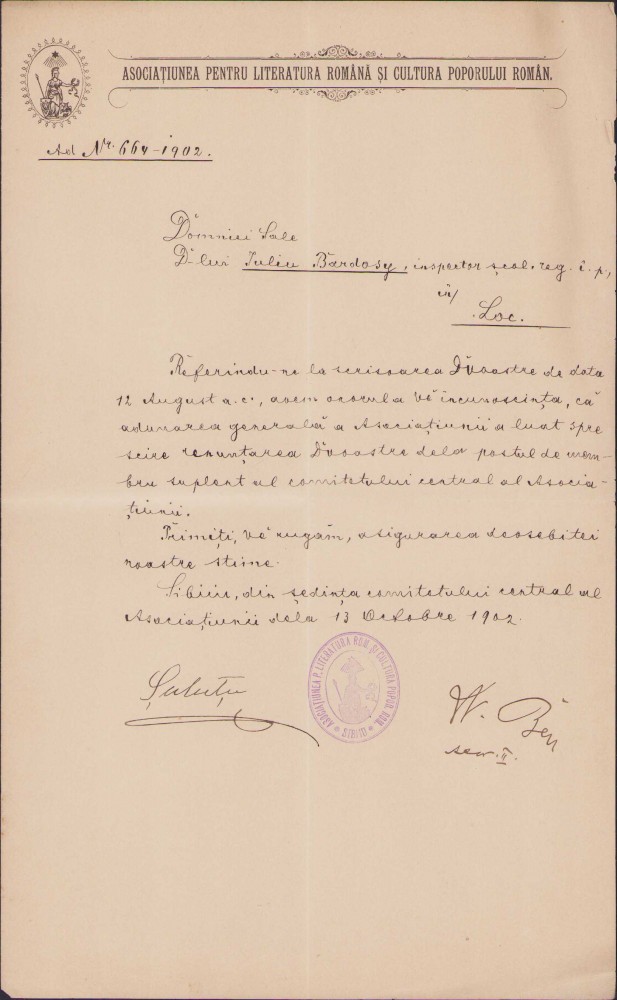 ASOCIAȚIUNEA PENTRU LITERATURA ROMÂNĂ ȘI CULTURA POPORULUI ROMÂN.
Ad Nr. 664-1902.
Domniei Sale
D-lui Iuliu Bardosy, inspector școl. reg. i. p.,
în
Loc.
Referindu-ne la scrisoarea D'voastre de data
12 August a.c., avem onorul a Vĕ încunosciința, că
adunarea generală a Asociațiunii a luat spre
scire renunțarea D'voastre dela postul de mem-
bru suplent al comitetului central al Asocia-
țiunii.
Primiți, Vĕ rugăm, asigurarea deosebitei
noastre stime.
Sibiiu, din ședința comitetului central al
Asociațiunii dela 13 Octobre 1902.
Șuluțu
ASOCIAȚIUNEA P. LITERATURA ROM. ȘI CULTURA POPOR. ROM.
SIBIIU
secr. II.